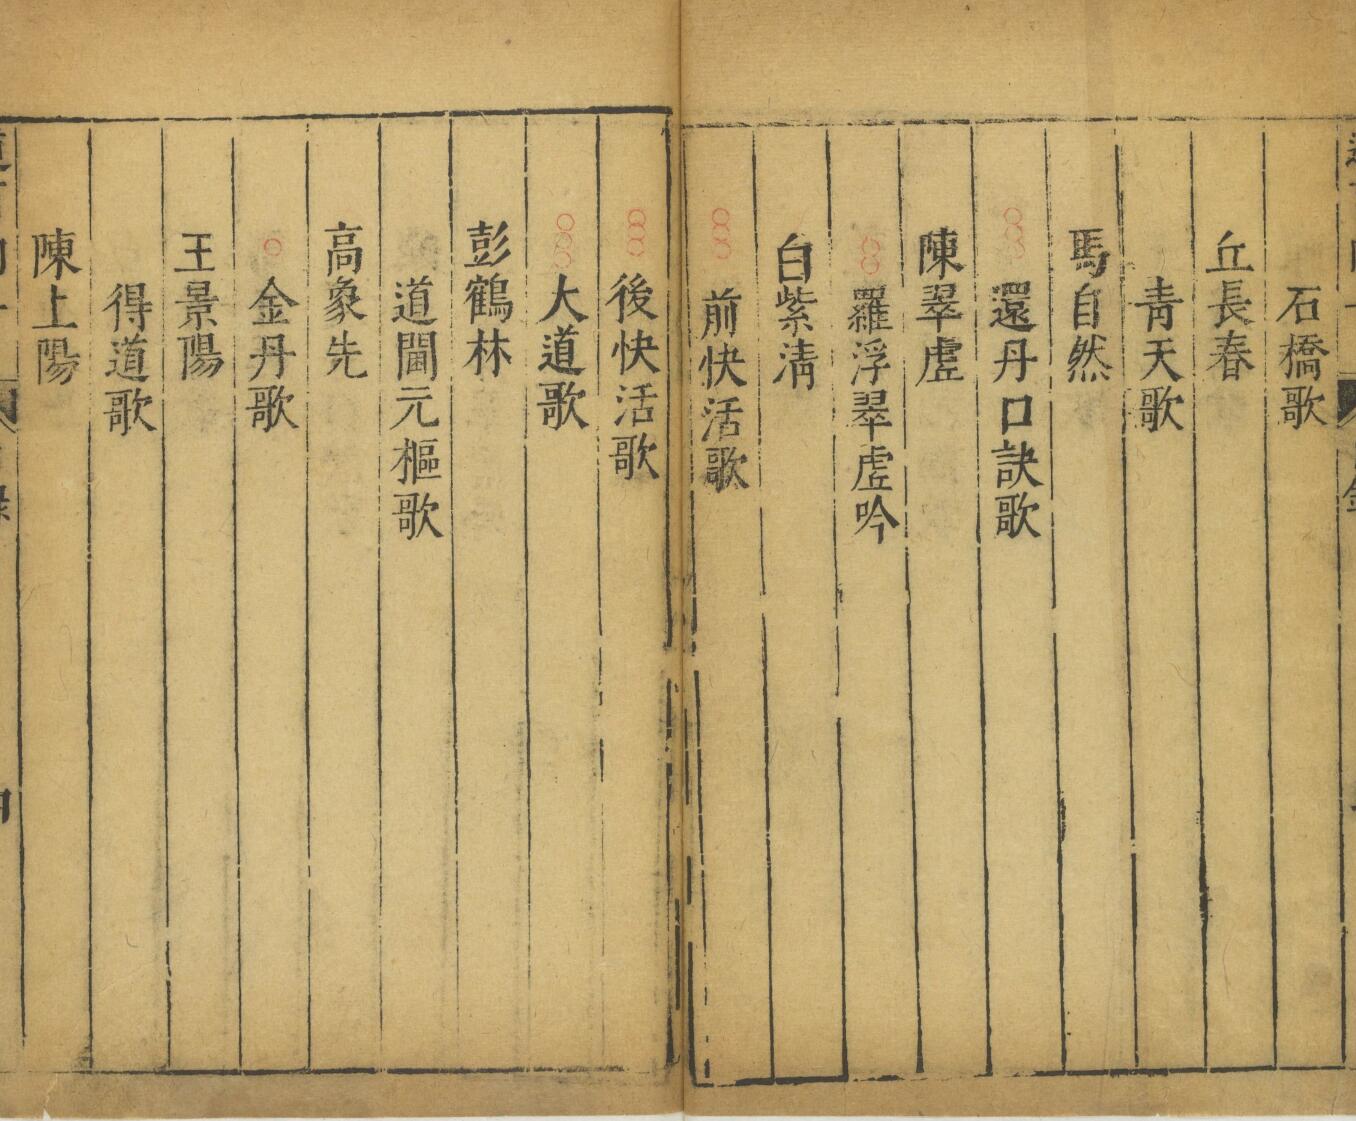 石橋歌
丘長春
青天歌
馬自然
還丹口訣歌
陳翠虛
羅浮翠虛吟
白紫清
前快活歌
後快活歌
大道歌
彭鶴林
道閫元樞歌
高象先
金丹歌
王景陽
得道歌
陳上陽